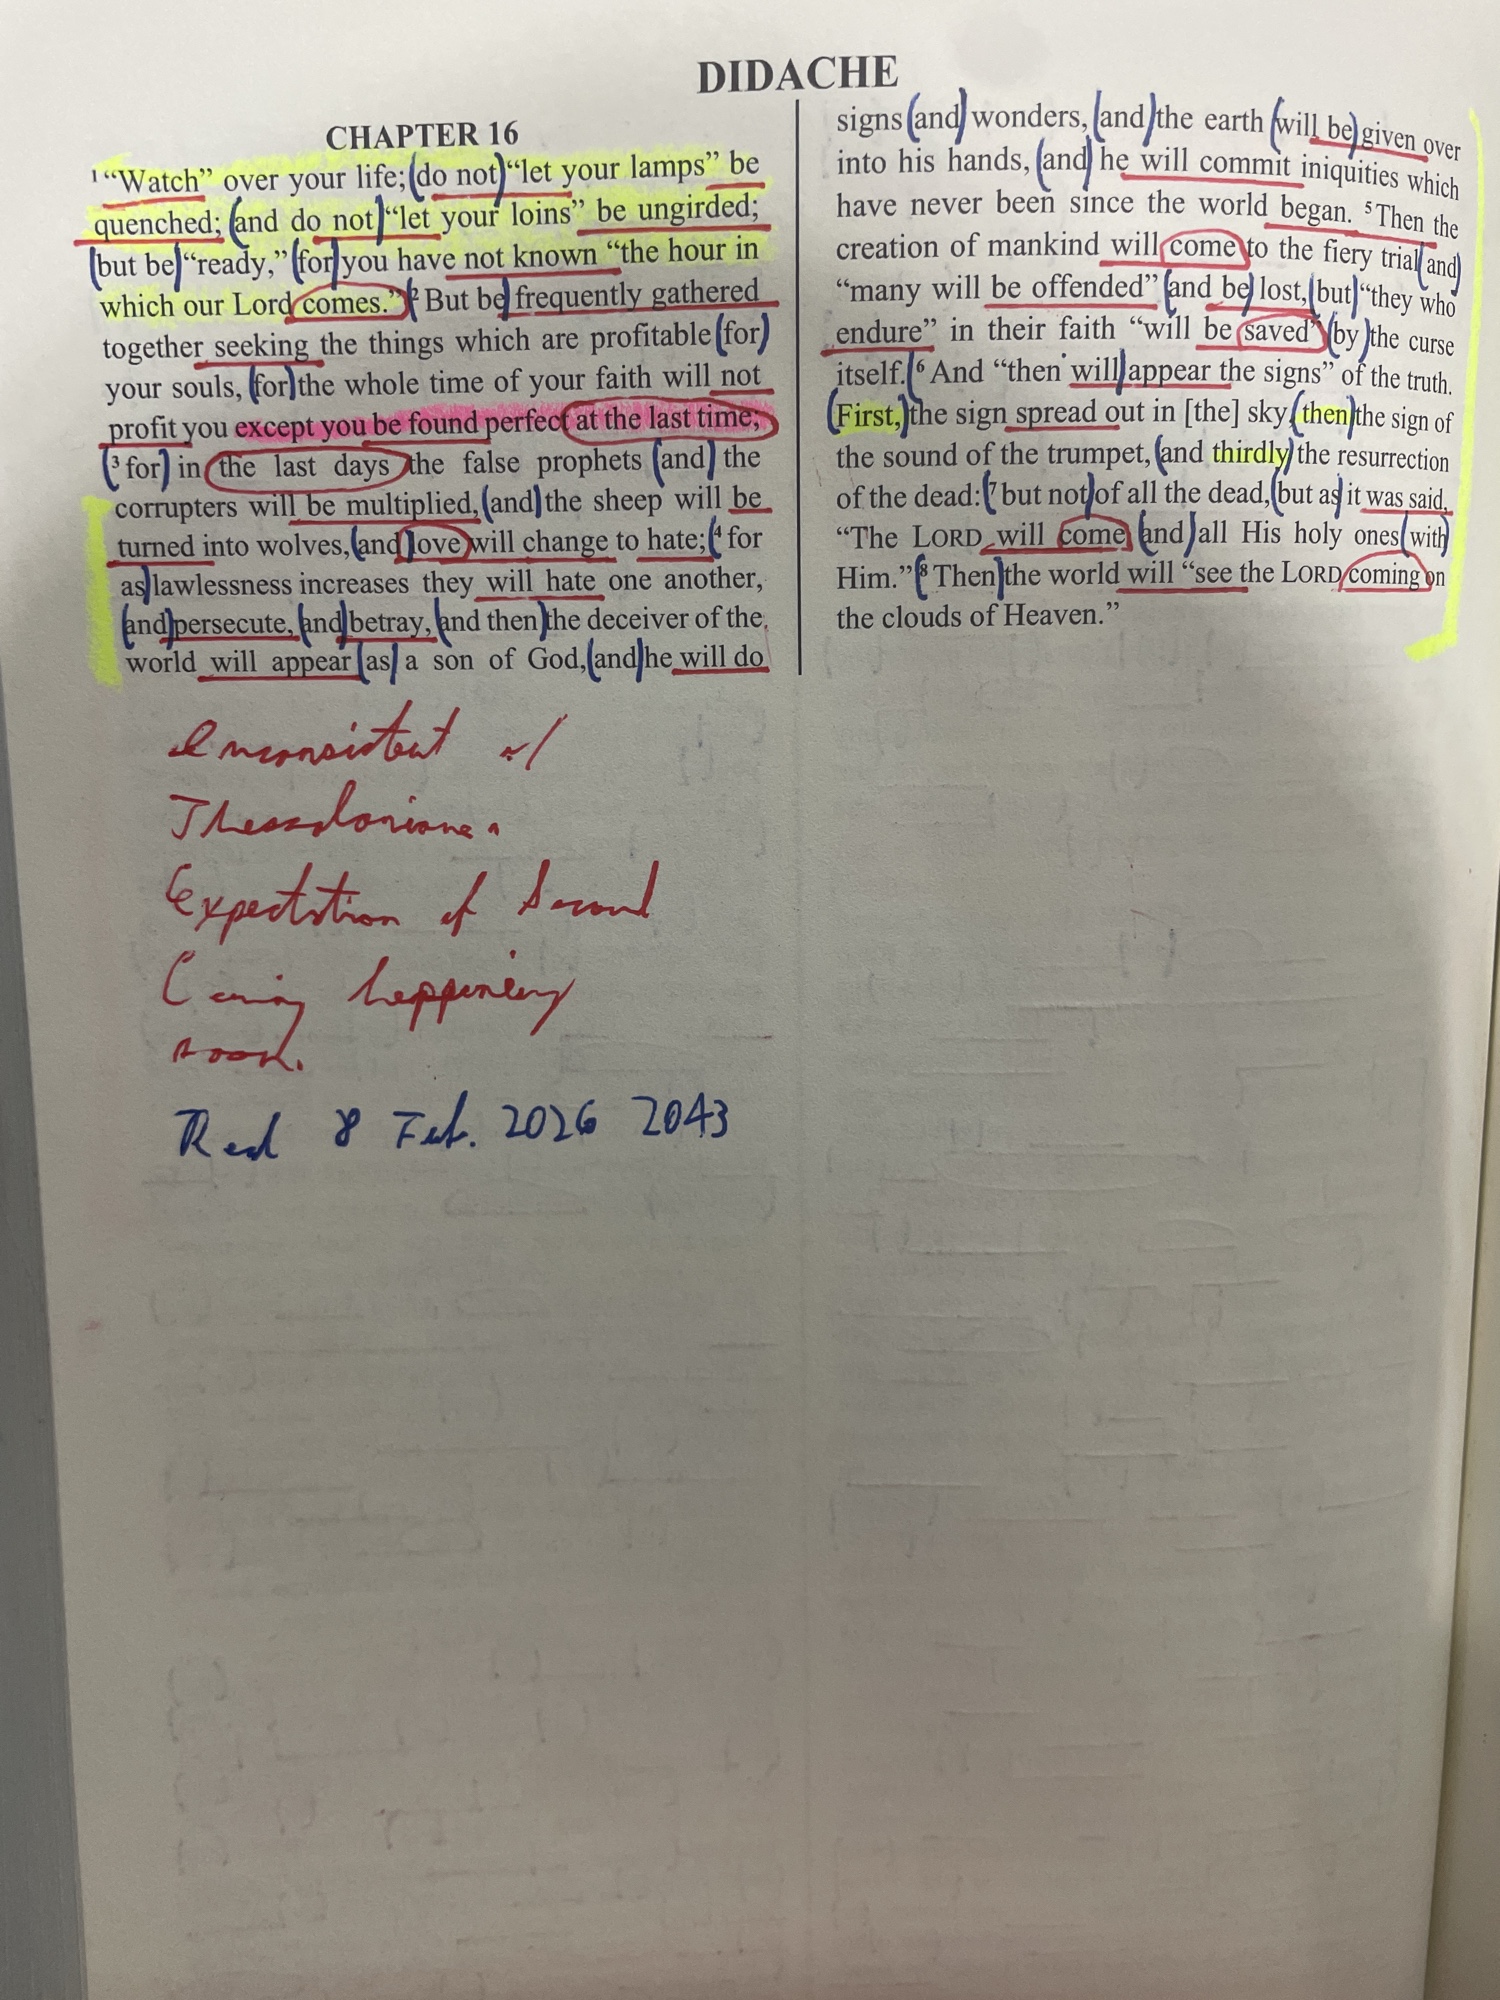 DIDACHE
CHAPTER 16
1 “Watch” over your life; (do not) “let your lamps” be
quenched; (and do not) “let your loins” be ungirded;
(but be) “ready,” (for) you have not known “the hour in
which our Lord comes.” (2 But be) frequently gathered
together seeking the things which are profitable (for)
your souls, (for) the whole time of your faith will not
profit you except you be found perfect at the last time;
(3 for) in the last days the false prophets (and) the
corrupters will be multiplied, (and) the sheep will be
turned into wolves, (and) love will change to hate; (4 for
as) lawlessness increases they will hate one another,
(and) persecute, (and) betray, (and then) the deceiver of the
world will appear (as) a son of God, (and) he will do
signs (and) wonders, (and) the earth (will be) given over
into his hands, (and) he will commit iniquities which
have never been since the world began. 5 Then the
creation of mankind will come to the fiery trial (and)
“many will be offended” (and be) lost, (but) “they who
endure” in their faith “will be saved” (by) the curse
itself. (6 And “then will) appear the signs” of the truth.
(First,) the sign spread out in [the] sky, (then) the sign of
the sound of the trumpet, (and thirdly) the resurrection
of the dead: (7 but not) of all the dead, (but as) it was said,
“The LORD will come (and) all His holy ones (with)
Him.” (8 Then) the world will “see the LORD coming on
the clouds of Heaven.”
Inconsistent w/
Thessalonians.
Expectation of Second
Coming happening
soon.
Red 8 Feb. 2026 2043